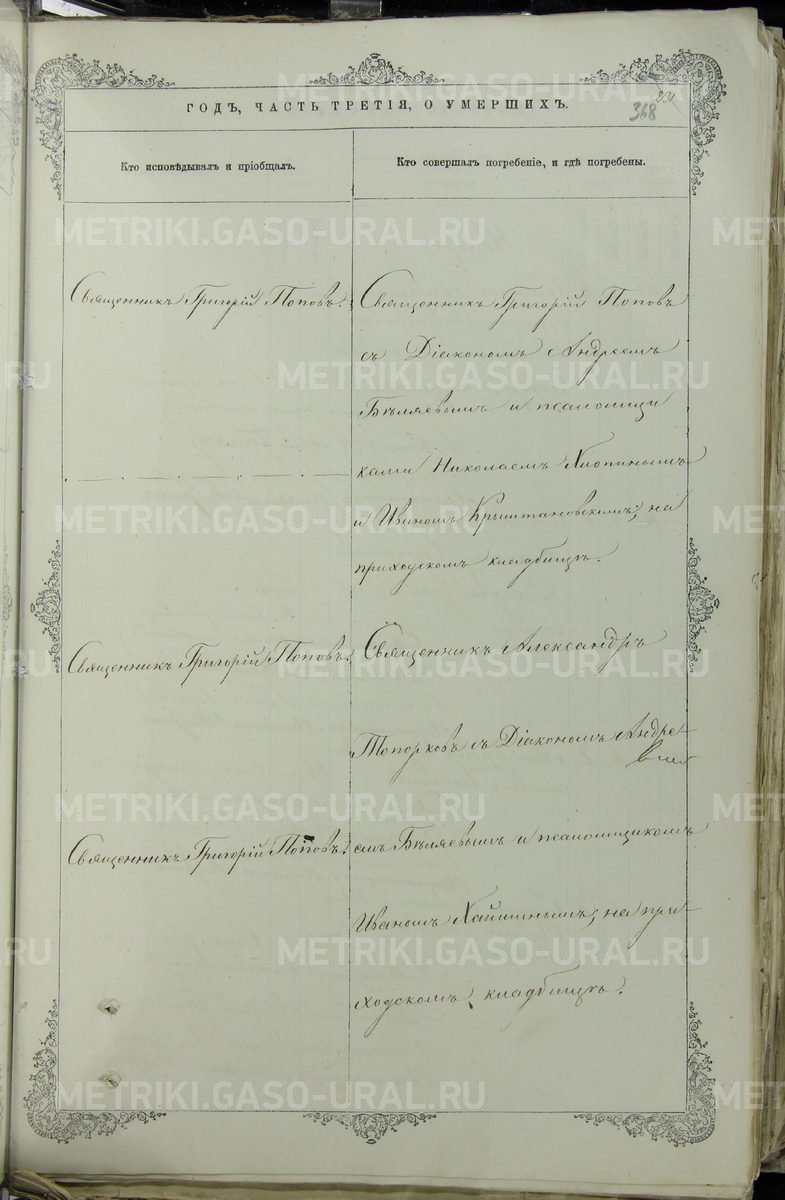 ГОДЪ, ЧАСТЬ ТРЕТІЯ, О УМЕРШИХЪ.
368
Кто исповѣдывалъ и пріобщалъ.
Кто совершалъ погребеніе, и гдѣ погребены.
Священникъ Григорій Поповъ.
Священникъ Григорій Поповъ
съ Діакономъ Андреемъ
Бѣляевымъ и псаломщи
ками Николаемъ Хлопинымъ
и Иваномъ Крыштановскимъ; на
приходскомъ кладбищѣ.
Священникъ Григорій Поповъ.
Священникъ Александръ
Топорковъ съ Діакономъ Андре-
Священникъ Григорій Поповъ.
емъ Бѣляевымъ и псаломщикомъ
Иваномъ Хайминымъ; на при-
ходскомъ кладбищѣ.
METRIKI.GASO-URAL.RU